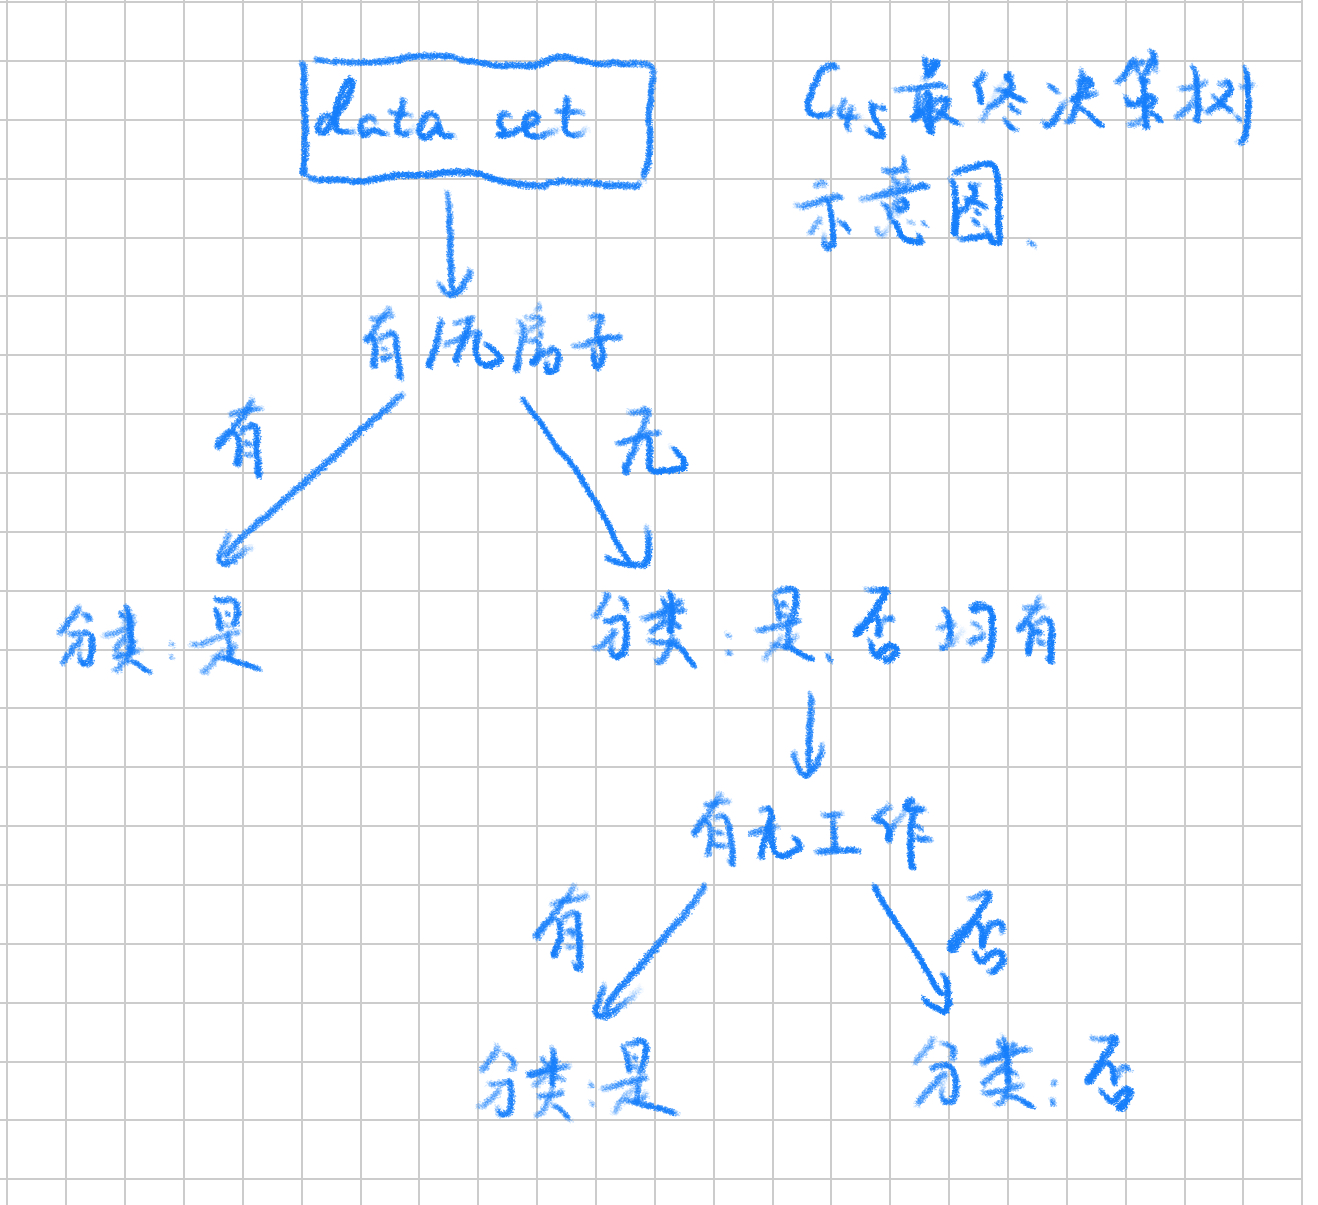 data set
C45最终决策树
示意图.
有无房子
有
无
分类:是
分类:是、否均有
有无工作
有
否
分类:是
分类:否